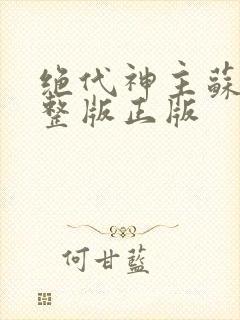 绝代神主蘇
整版正版
何甘藍